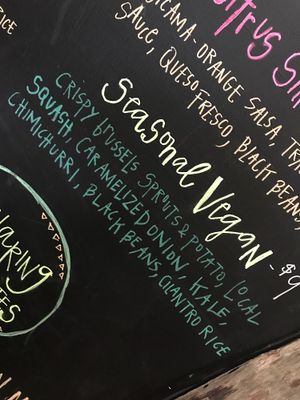 RICE
CITRUS
JICAMA-ORANGE SALSA,
SAUCE, QUESO FRESCO, BLACK BEANS,
SEASONAL VEGAN - $9
CRISPY BRUSSELS SPROUTS & POTATO, LOCAL
SQUASH, CARAMELIZED ONION, KALE,
CHIMICHURRI, BLACK BEANS, CILANTRO RICE